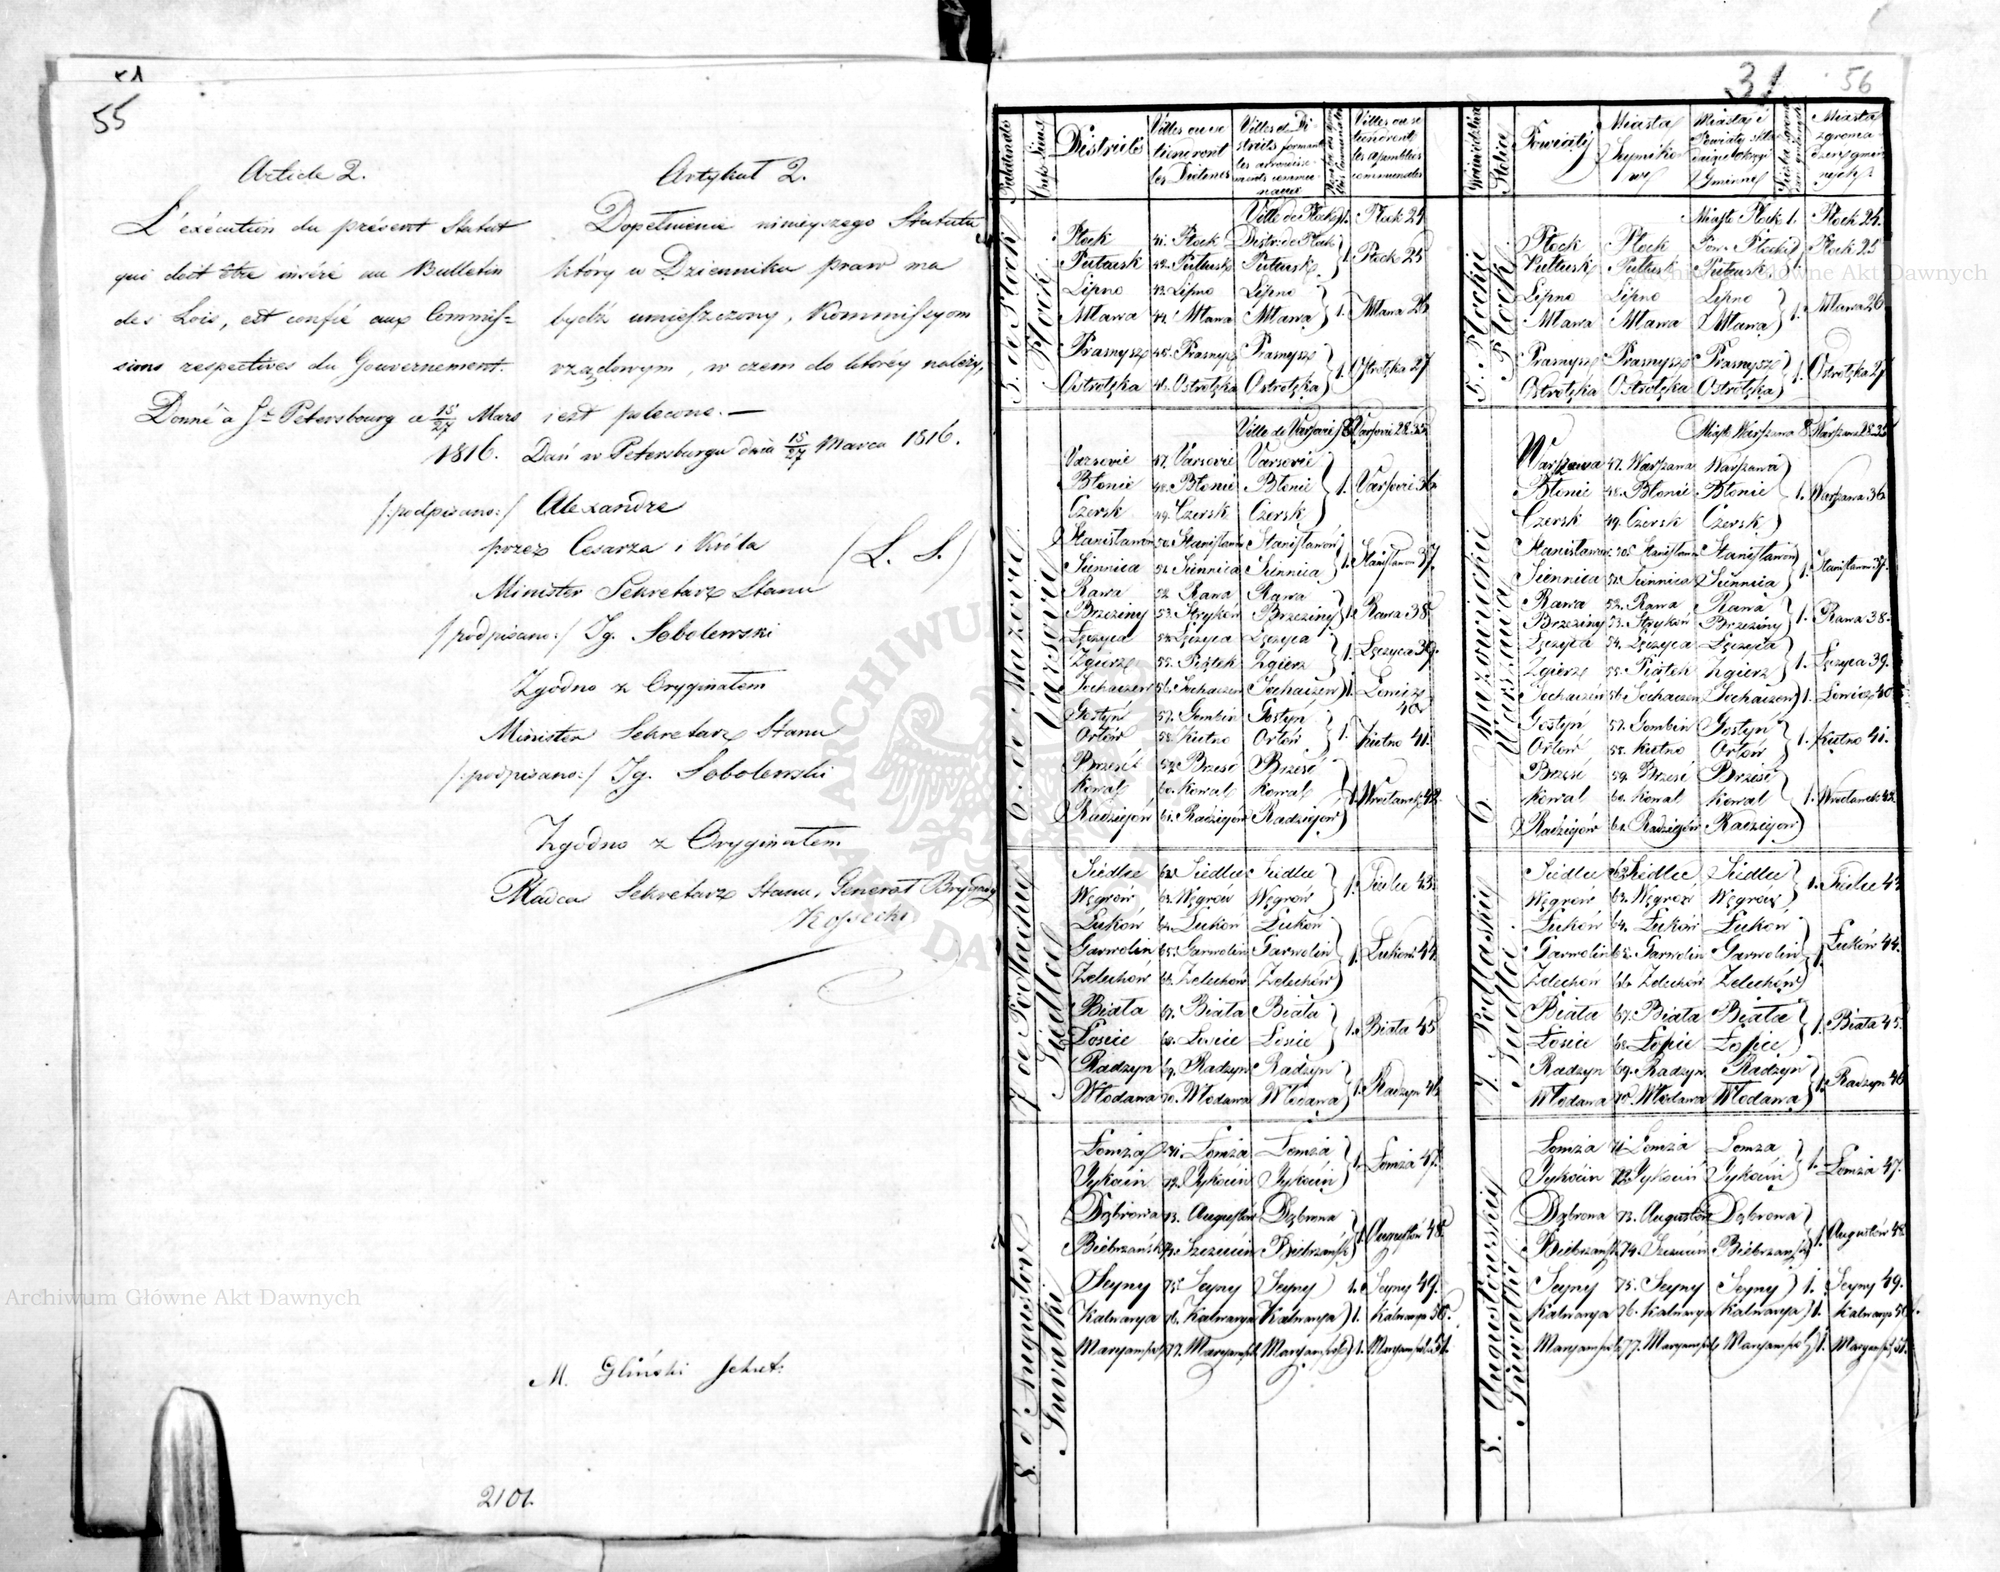 55
Article 2.
L'exécution du présent Statut
qui doit être inséré au Bulletin
des Lois, est confié aux Commis-
sions respectives du Gouvernement.
Donné à St Petersbourg a 15/27 Mars
1816.
Artykuł 2.
Dopełnienie ninieyszego Statutu
który w Dzienniku praw ma
bydź umieszczony, Kommissyom
rządowym, w czem do którey należy,
jest polecone. —
Dań w Petersburgu dnia 15/27 Marca 1816.
/:podpisano:/ Alexandre
przez Cesarza i Króla
(L. S.)
Minister Sekretarz Stanu
/:podpisano:/ Ig. Sobolewski
Zgodno z Oryginałem
Minister Sekretarz Stanu
/:podpisano:/ Ig. Sobolewski
Zgodno z Oryginałem
Radca Sekretarz Stanu, Generał Brygady
Kossecki
M. Gliński Sekret:
2101.
31. 56
Districts
Villes ou se tiendront les Diétines
Villes et Districts formant les arrondissements communaux
Villes ou se tiendront les assemblées communales
5. de Płock
Płock
Ville de Płock 1. Płock 24
Płock 41. Płock Distr: de Płock
Pułtusk 42. Pułtusk Pułtusk 1. Płock 25
Lipno 43. Lipno Lipno
Mława 44. Mława Mława 1. Mława 26
Prasnysz 45. Prasnysz Prasnysz
Ostrołęka 46. Ostrołęka Ostrołęka 1. Ostrołęka 27
6. de Mazovie
Varsovie
Ville de Varsovie 8 Varsovie 28.35
Varsovie 47. Varsovie Varsovie
Błonie 48. Błonie Błonie 1. Varsovie 36
Czersk 49. Czersk Czersk
Stanisławow 50. Stanisławow Stanisławow
Siennica 51. Siennica Siennica 1. Stanisławow 37.
Rawa 52. Rawa Rawa
Brzeziny 53. Stryków Brzeziny 1. Rawa 38
Łęczyca 54. Łęczyca Łęczyca
Zgierz 55. Piątek Zgierz 1. Łęczyca 39.
Sochaczew 56. Sochaczew Sochaczew 1. Łowicz 40
Gostyń 57. Gombin Gostyń
Orłów 58. Kutno Orłów 1. Kutno 41.
Brześć 59. Brześć Brześć
Kowal 60. Kowal Kowal 1. Wrocławek 42.
Radziejów 61. Radziejów Radziejów
7. de Podlachie
Siedlce
Siedlce 62. Siedlce Siedlce
Węgrów 63. Węgrów Węgrów 1. Siedlce 43.
Łuków 64. Łuków Łuków
Garwolin 65. Garwolin Garwolin 1. Łuków 44.
Żelechów 66. Żelechów Żelechów
Biała 67. Biała Biała
Łosice 68. Łosice Łosice 1. Biała 45
Radzyn 69. Radzyn Radzyn
Włodawa 70. Włodawa Włodawa 1. Radzyn 46
8. d'Augustow
Suwałki
Łomża 71. Łomża Łomża
Tykocin 72. Tykocin Tykocin 1. Łomża 47.
Dąbrowa 73. Augustów Dąbrowa
Biebrzańsk 74. Szczucin Biebrzańsk 1. Augustów 48.
Seyny 75. Seyny Seyny 1. Seyny 49.
Kalwarya 76. Kalwarya Kalwarya 1. Kalwarya 50.
Maryampol 77. Maryampol Maryampol 1. Maryampol 51.
Województwa
Stolica
Powiaty
Miasta Seymikowe
Miasta i Powiaty składaiące Okręgi Gminne
Miasta zgromadzeń gminnych
5. Płockie
Płock
Miasto Płock 1. Płock 24.
Płock Płock Pow. Płocki
Pułtusk Pułtusk Pułtusk 1. Płock 25
Lipno Lipno Lipno
Mława Mława Mława 1. Mława 26
Prasnysz Prasnysz Prasnysz
Ostrołęka Ostrołęka Ostrołęka 1. Ostrołęka 27
6. Mazowieckie
Warszawa
Miasto Warszawa 8. Warszawa 28.35
Warszawa 47. Warszawa Warszawa
Błonie 48. Błonie Błonie 1. Warszawa 36
Czersk 49. Czersk Czersk
Stanisławow 50. Stanisławow Stanisławow
Siennica 51. Siennica Siennica 1. Stanisławow 37.
Rawa 52. Rawa Rawa
Brzeziny 53. Stryków Brzeziny 1. Rawa 38.
Łęczyca 54. Łęczyca Łęczyca
Zgierz 55. Piątek Zgierz 1. Łęczyca 39.
Sochaczew 56. Sochaczew Sochaczew 1. Łowicz 40
Gostyń 57. Gombin Gostyń
Orłów 58. Kutno Orłów 1. Kutno 41.
Brześć 59. Brześć Brześć
Kowal 60. Kowal Kowal 1. Wrocławek 42.
Radziejów 61. Radziejów Radziejów
7. Podlaskie
Siedlce
Siedlce 62. Siedlce Siedlce
Węgrów 63. Węgrów Węgrów 1. Siedlce 43
Łuków 64. Łuków Łuków
Garwolin 65. Garwolin Garwolin 1. Łuków 44.
Żelechów 66. Żelechów Żelechów
Biała 67. Biała Biała
Łosice 68. Łosice Łosice 1. Biała 45.
Radzyn 69. Radzyn Radzyn
Włodawa 70. Włodawa Włodawa 1. Radzyn 46
8. Augustowskie
Suwałki
Łomża 71. Łomża Łomża
Tykocin 72. Tykocin Tykocin 1. Łomża 47.
Dąbrowa 73. Augustów Dąbrowa
Biebrzańsk 74. Szczucin Biebrzańsk 1. Augustów 48
Seyny 75. Seyny Seyny 1. Seyny 49.
Kalwarya 76. Kalwarya Kalwarya 1. Kalwarya 50.
Maryampol 77. Maryampol Maryampol 1. Maryampol 51.
Archiwum Główne Akt Dawnych
Archiwum Główne Akt Dawnych